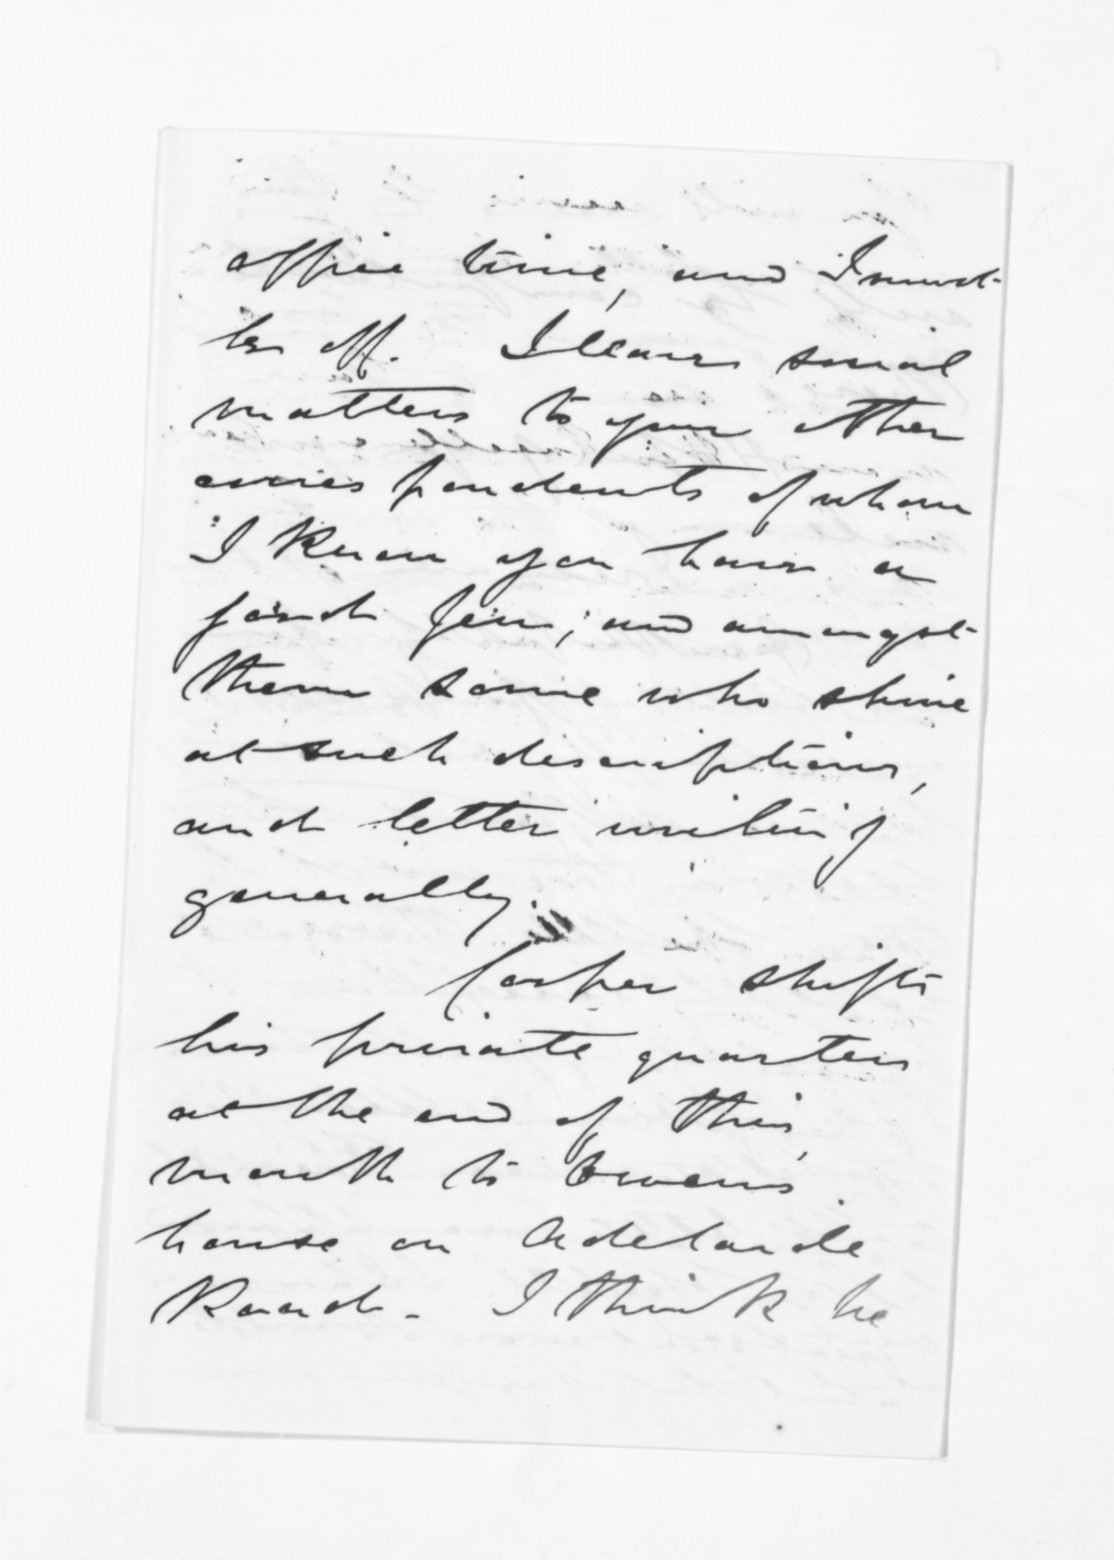 office time, and I must
be off. I leave social
matters to your other
corres pondents of whom
I know you have a
good few; and amongst
them some who shine
at such descriptions,
and letter writing
generally.
Cooper shifts
his private quarters
at the end of this
month to Owen's
house on Adelaide
Road. I think he